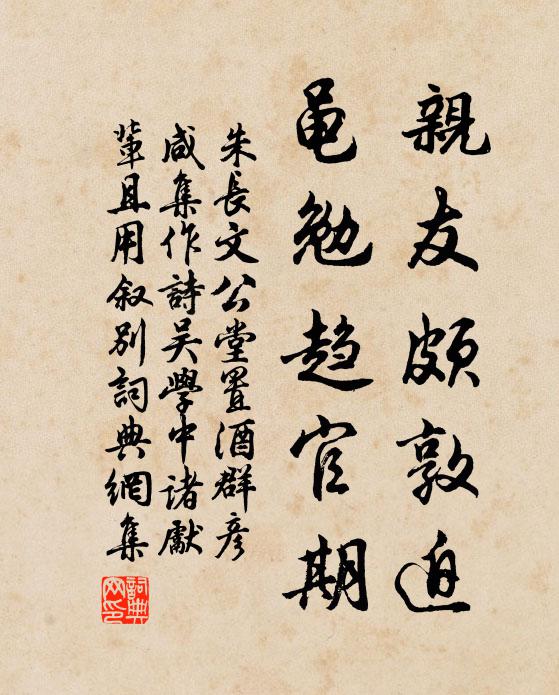 親友頗敦迫
黽勉趨官期
朱長文公堂置酒群彥
咸集作詩吴學中諸獻
輩且用叙別詞典網集
詞典網印